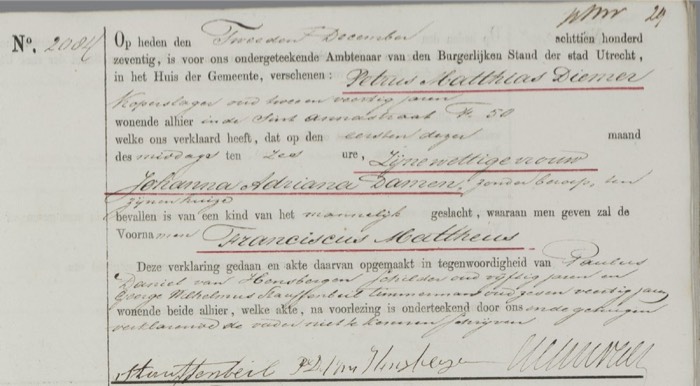 29
N°. 2084
Op heden den Tweeden December achttien honderd
zeventig, is voor ons ondergeteekende Ambtenaar van den Burgerlijken Stand der stad Utrecht,
in het Huis der Gemeente, verschenen: Petrus Matthias Diemer
Koperslager oud twee en veertig jaren
wonende alhier in de Sint Annastraat F. 50
welke ons verklaard heeft, dat op den eersten dezer maand
des middags ten zes ure, Zijne wettige vrouw
Johanna Adriana Damen, zonder beroep, ten
zijnen huize
bevallen is van een kind van het mannelijk geslacht, waaraan men geven zal de
Voornamen Franciscus Mattheus
Deze verklaring gedaan en akte daarvan opgemaakt in tegenwoordigheid van Paulus
Daniel van Hensbergen schilder oud vijftig jaren en
George Wilhelmus Stauffenbeil timmerman oud zeven veertig jaren
wonende beide alhier, welke akte, na voorlezing is onderteekend door ons en de getuigen
verklarende de vader niet te kunnen schrijven
Stauffenbeil P D van Hensbergen